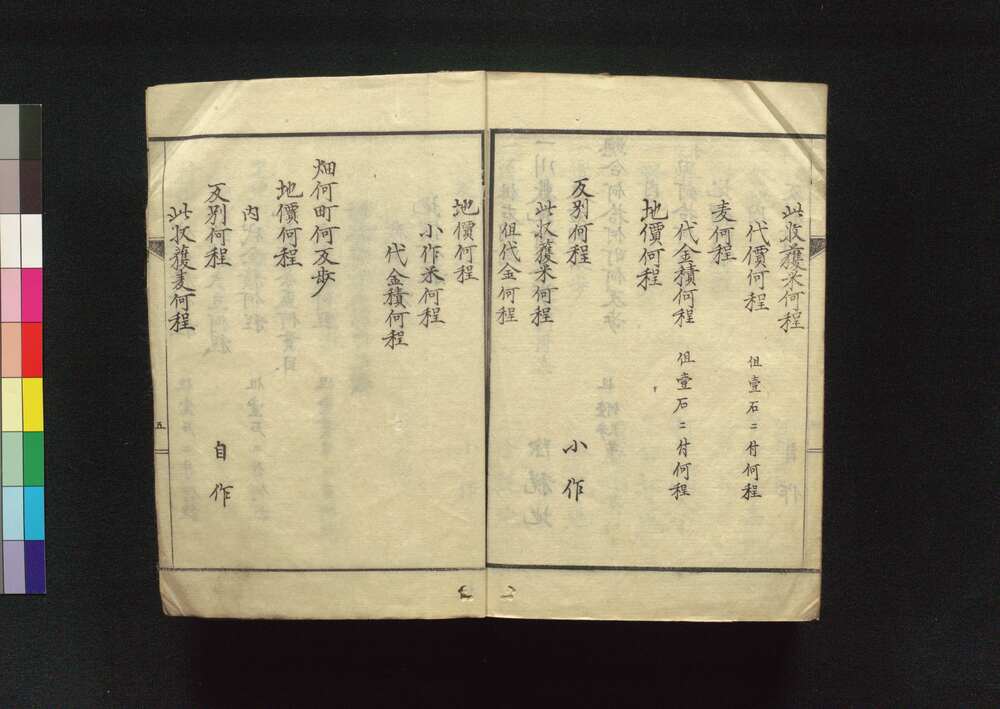 此收獲米何程
代價何程 但壹石ニ付何程
麦何程
代金積何程 但壹石ニ付何程
地價何程
反別何程 小作
此收獲米何程
但代金何程
地價何程
小作米何程
代金積何程
畑何町何反歩
地價何程
内
反別何程 自作
此収獲麦何程
五